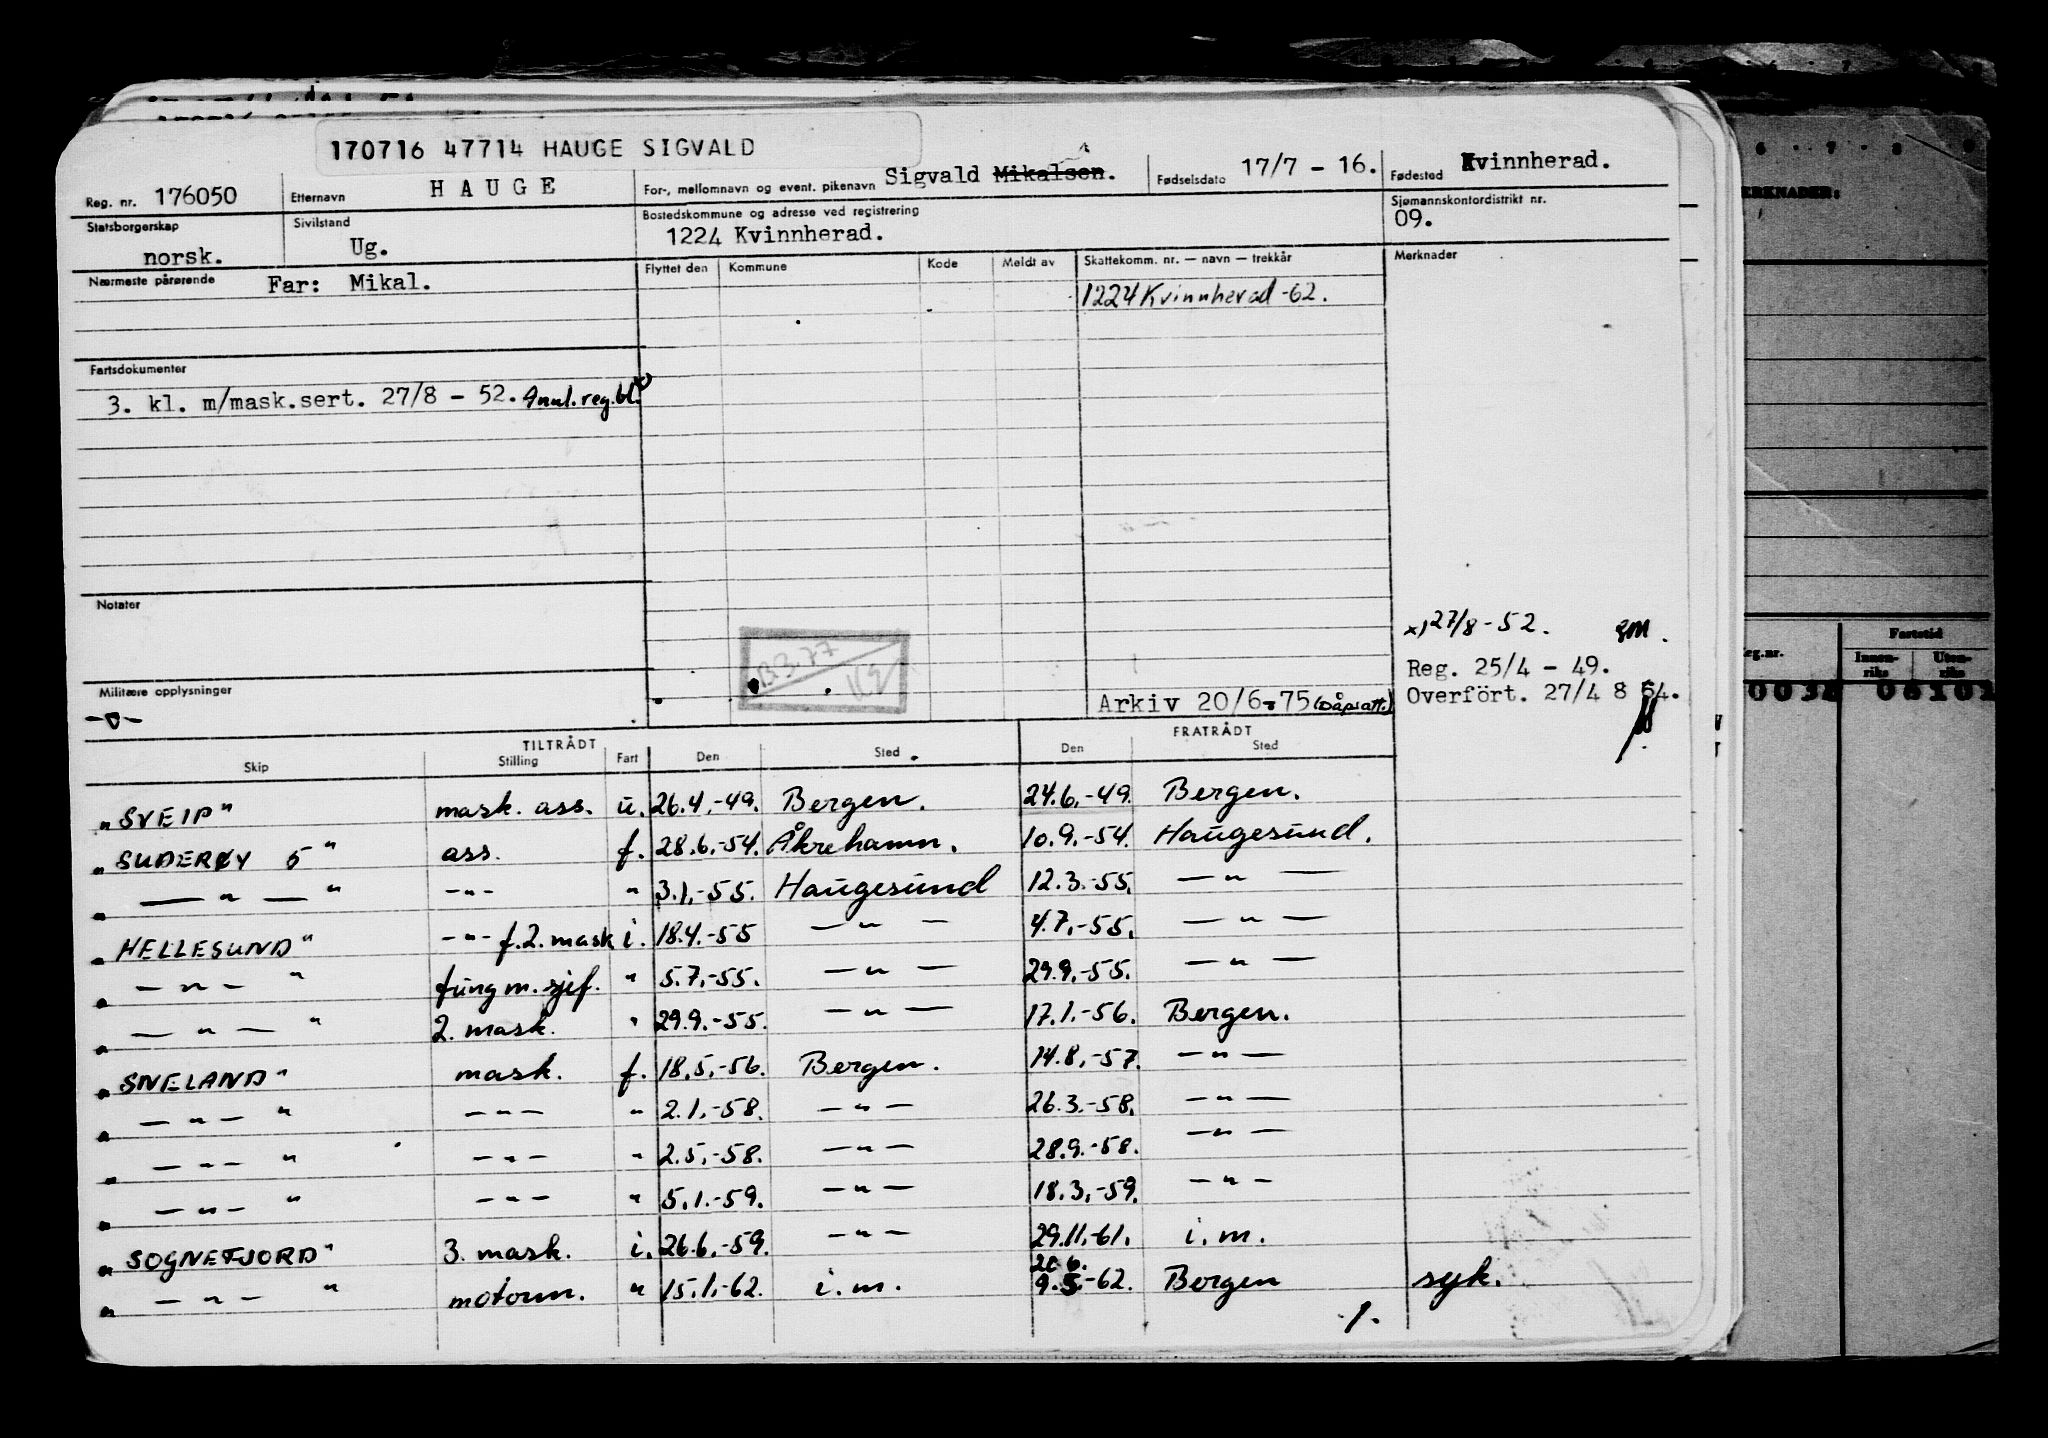 170716 47714 HAUGE SIGVALD
Reg. nr. 176050 Etternavn HAUGE For-, mellomnavn og event. pikenavn Sigvald Mikalsen. Fødselsdato 17/7 - 16. Fødested Kvinnherad.
Statsborgerskap norsk. Sivilstand Ug. Bostedskommune og adresse ved registrering 1224 Kvinnherad. Sjømannskontordistrikt nr. 09.
Nærmeste pårørende Far: Mikal. Flyttet den Kommune Kode Meldt av Skattekomm. nr. — navn — trekkår Merknader
1224 Kvinnherad -62.
Fartsdokumenter
3. kl. m/mask.sert. 27/8 - 52. Anul. reg. bl. x)
Notater
x) 27/8 - 52.
Reg. 25/4 - 49.
Militære opplysninger
Arkiv 20/6-75 (Dåpsatt.) Overfört. 27/4 8 64.
TILTRÅDT FRATRÅDT
Skip Stilling Fart Den Sted Den Sted
"SVEIP" mask. ass. u. 26.4.-49. Bergen. 24.6.-49. Bergen.
"SUDERØY 5" ass. f. 28.6.-54. Åkrehamn. 10.9.-54. Haugesund.
" — " — " - " - " 3.1.-55. Haugesund 12.3.-55. — " —
"HELLESUND" - " - f. 2. mask i. 18.4.-55 — " — 4.7.-55. — " —
" — " — " fung m. sjef. " 5.7.-55. — " — 29.9.-55. — " —
" — " — " 2. mask. " 29.9.-55. — " — 17.1.-56. Bergen.
"SNELAND" mask. f. 18.5.-56. Bergen. 14.8.-57. — " —
" — " — " — " — " 2.1.-58. — " — 26.3.-58. — " —
" — " — " — " — " 2.5.-58. — " — 28.9.-58. — " —
" — " — " — " — " 5.1.-59. — " — 18.3.-59. — " —
"SOGNEFJORD" 3. mask. i. 26.6.-59. — " — 29.11.-61. i.m.
" — " — " motorm. " 15.1.-62. i.m. 9.5.-62. Bergen syk.
ERKNADER:
eg.nr. Innen-riks Fartstid Uten-riks